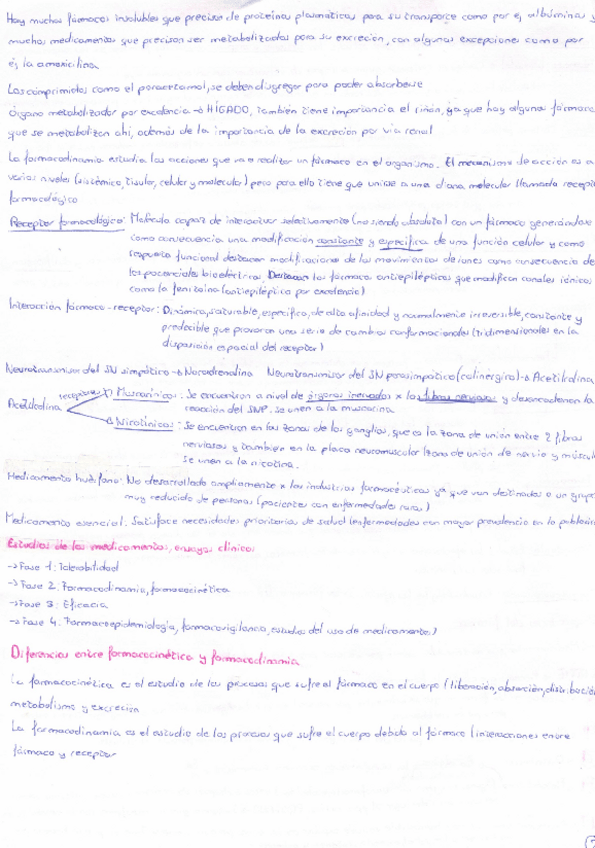 Hay muchos fármacos insolubles que precisan de proteínas plasmáticas para su transporte como por ej albúmina y
muchos medicamentos que precisan ser metabolizados para su excreción, con algunas excepciones como por
ej la amoxicilina
Los comprimidos como el paracetamol, se deben disgregar para poder absorberse
Órgano metabolizador por excelencia → HÍGADO, también tiene importancia el riñón, ya que hay algunos fármaco
que se metabolizan ahí, además de la importancia de la excreción por vía renal
La farmacodinamia estudia las acciones que va a realizar un fármaco en el organismo. El mecanismo de acción es a
varios niveles (sistémico, tisular, celular y molecular) pero para ello tiene que unirse a una diana molecular llamada recept
farmacológico
Receptor farmacológico: Molécula capaz de interactuar selectivamente (no siendo absoluta) con un fármaco generándose
como consecuencia una modificación constante y específica de una función celular y como
respuesta funcional destacan modificaciones de los movimientos de iones como consecuencia de
los potenciales bioeléctricos, Destacan los fármacos antiepilépticos que modifican canales iónicos
como la fenitoína (antiepiléptico por excelencia)
Interacción fármaco-receptor: Dinámica, saturable, específica, de alta afinidad y normalmente irreversible, constante y
predecible que provocan una serie de cambios conformacionales (tridimensionales en la
disposición espacial del receptor)
Neurotransmisor del SN simpático → Noradrenalina Neurotransmisor del SN parasimpático (colinérgico) → Acetilcolina
receptores → Muscarínicos: Se encuentran a nivel de órganos inervados x las fibras nerviosas y desencadenan la
Acetilcolina reacción del SNP. Se unen a la muscarina
→ Nicotínicos: Se encuentran en las zonas de los ganglios, que es la zona de unión entre 2 fibras
nerviosas y también en la placa neuromuscular (zona de unión de nervio y múscul
Se unen a la nicotina.
Medicamento huérfano: No desarrollado ampliamente x las industrias farmacéuticas ya que van destinados a un grup
muy reducido de personas (pacientes con enfermedades raras)
Medicamento esencial: Satisface necesidades prioritarias de salud (enfermedades con mayor prevalencia en la població
Estudios de los medicamentos, ensayos clínicos
→ Fase 1: Tolerabilidad
→ Fase 2: Farmacodinamia, farmacocinética
→ Fase 3: Eficacia
→ Fase 4: Farmacoepidemiología, farmacovigilancia, estudios del uso de medicamentos)
Diferencias entre farmacocinética y farmacodinamia
La farmacocinética es el estudio de los procesos que sufre el fármaco en el cuerpo (liberación, absorción, distribución
metabolismo y excreción
La farmacodinamia es el estudio de los procesos que sufre el cuerpo debido al fármaco (interacciones entre
fármaco y receptor